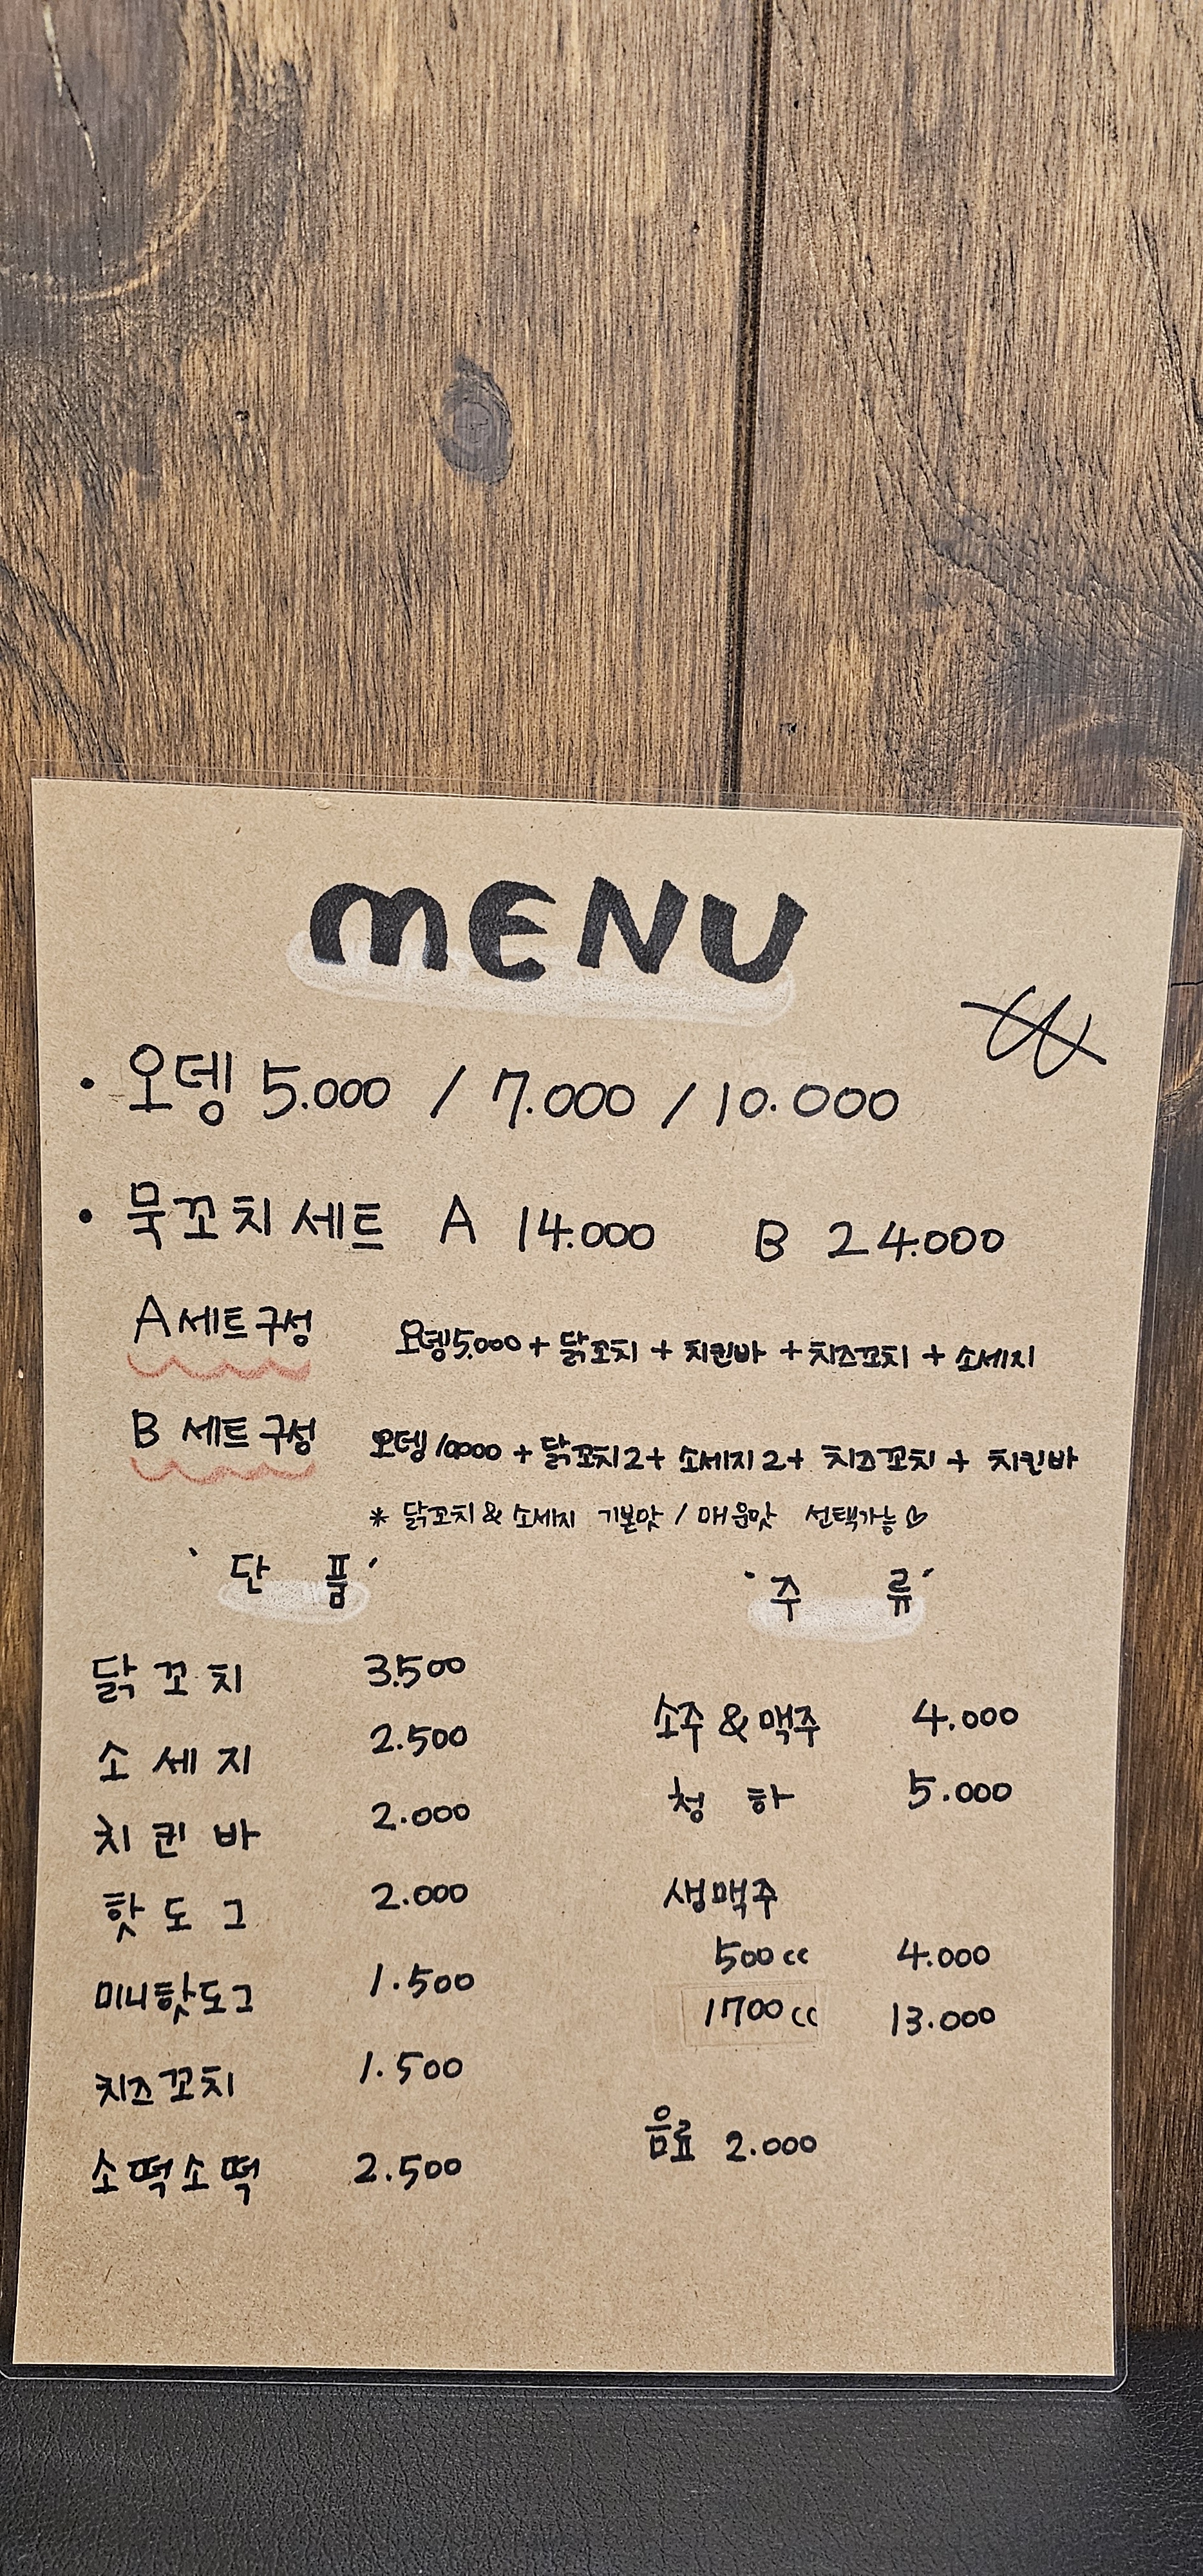 MENU
₩
· 오뎅 5.000 / 7.000 / 10.000
· 묵꼬치세트 A 14.000 B 24.000
A 세트구성 오뎅5.000 + 닭꼬치 + 치킨바 + 치즈꼬치 + 소세지
B 세트구성 오뎅10000 + 닭꼬치2 + 소세지2 + 치즈꼬치 + 치킨바
* 닭꼬치 & 소세지 기본맛 / 매운맛 선택가능♡
단 품
닭꼬치 3.500
소세지 2.500
치킨바 2.000
핫도그 2.000
미니핫도그 1.500
치즈꼬치 1.500
소떡소떡 2.500
주 류
소주 & 맥주 4.000
청하 5.000
생맥주
500cc 4.000
1700cc 13.000
음료 2.000